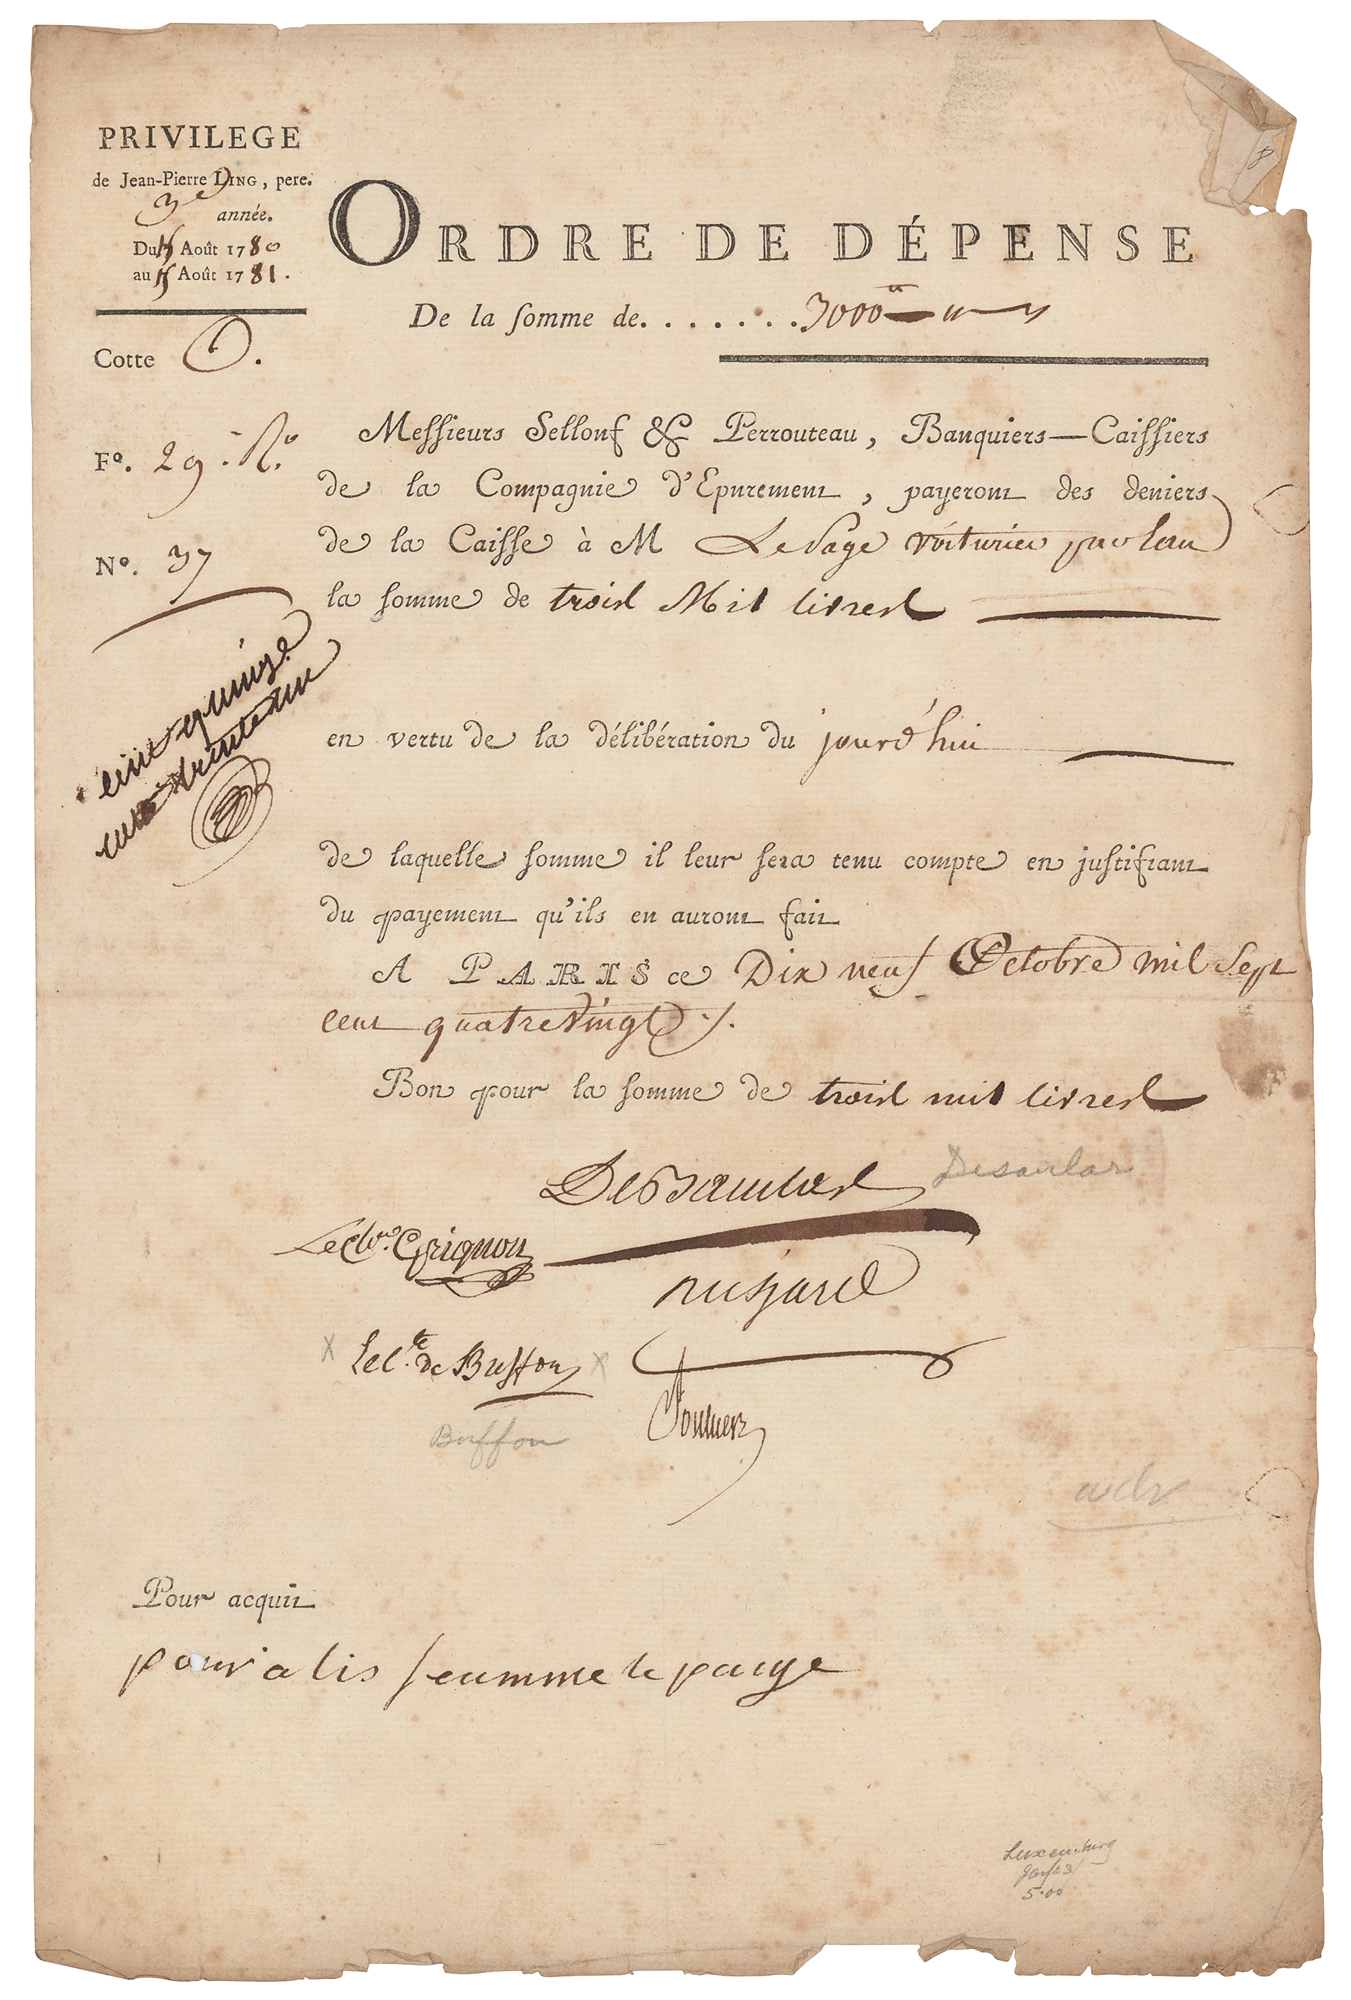 PRIVILEGE
de Jean-Pierre LING, pere.
3e année.
Du 15 Août 1780
au 15 Août 1781.
Cotte O.
Fº. 29. Rº.
Nº. 37
cent quinze
ORDRE DE DÉPENSE
De la somme de. . . . . . . 3000
Messieurs Sellonf & Perrouteau, Banquiers-Caissiers
de la Compagnie d'Epurement, payeront des deniers
de la Caisse à M Le Page voiturier par eau
la somme de trois Mil livres
en vertu de la délibération du jourd'hui
de laquelle somme il leur sera tenu compte en justifiant
du payement qu'ils en auront fait
A PARIS ce Dix neuf Octobre mil Sept
cent quatre Vingt ./.
Bon pour la somme de trois mil livres
Desaular
Le Chr. Grignon
Le Cte. de Buffon
Buffon
Pour acquit
pour alis feumme le pauge
Luxemburg
5.00
8